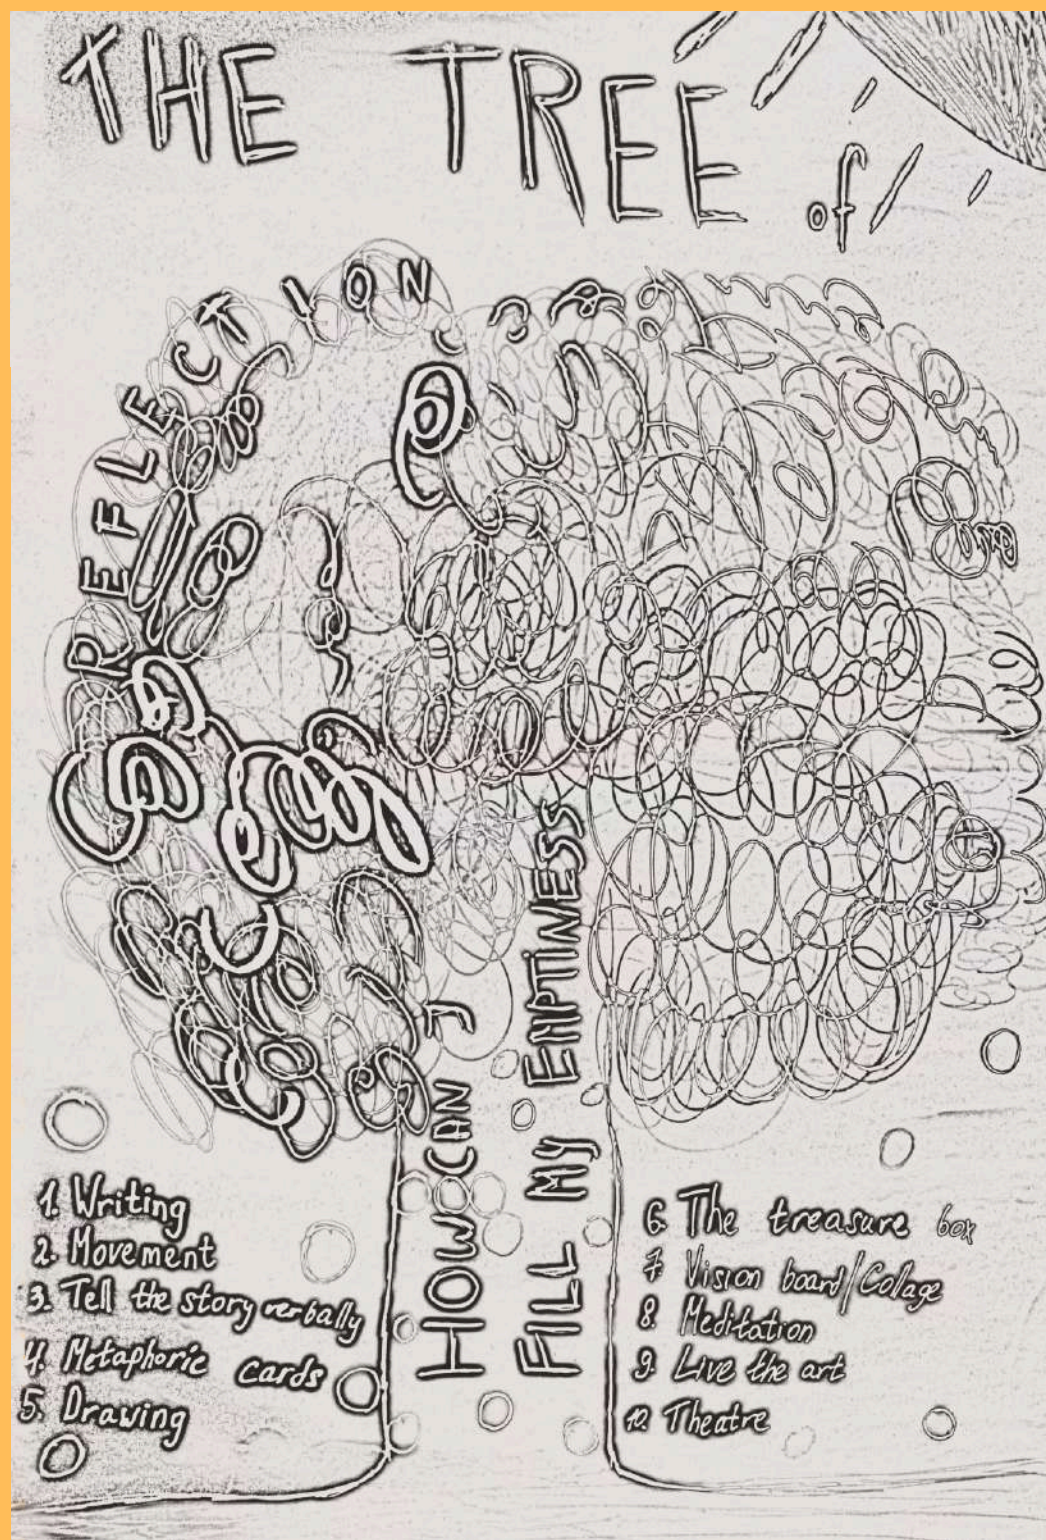 THE TREE of
REFLECTION
HOW CAN I
FILL MY EMPTINESS
1. Writing
2. Movement
3. Tell the story verbally
4. Metaphoric cards
5. Drawing
6. The treasure box
7 Vision board/Collage
8. Meditation
9. Live the art
10. Theatre